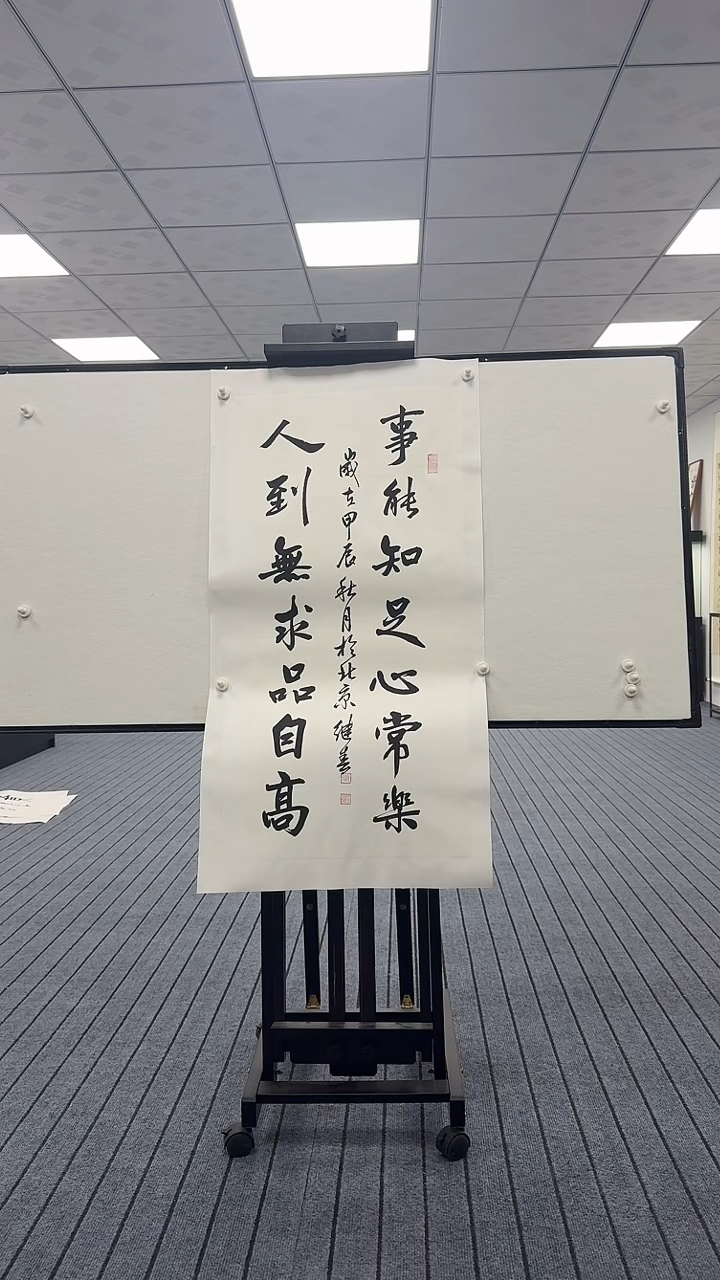 事能知足心常樂
歲在甲辰秋月於北京继春
人到無求品自高